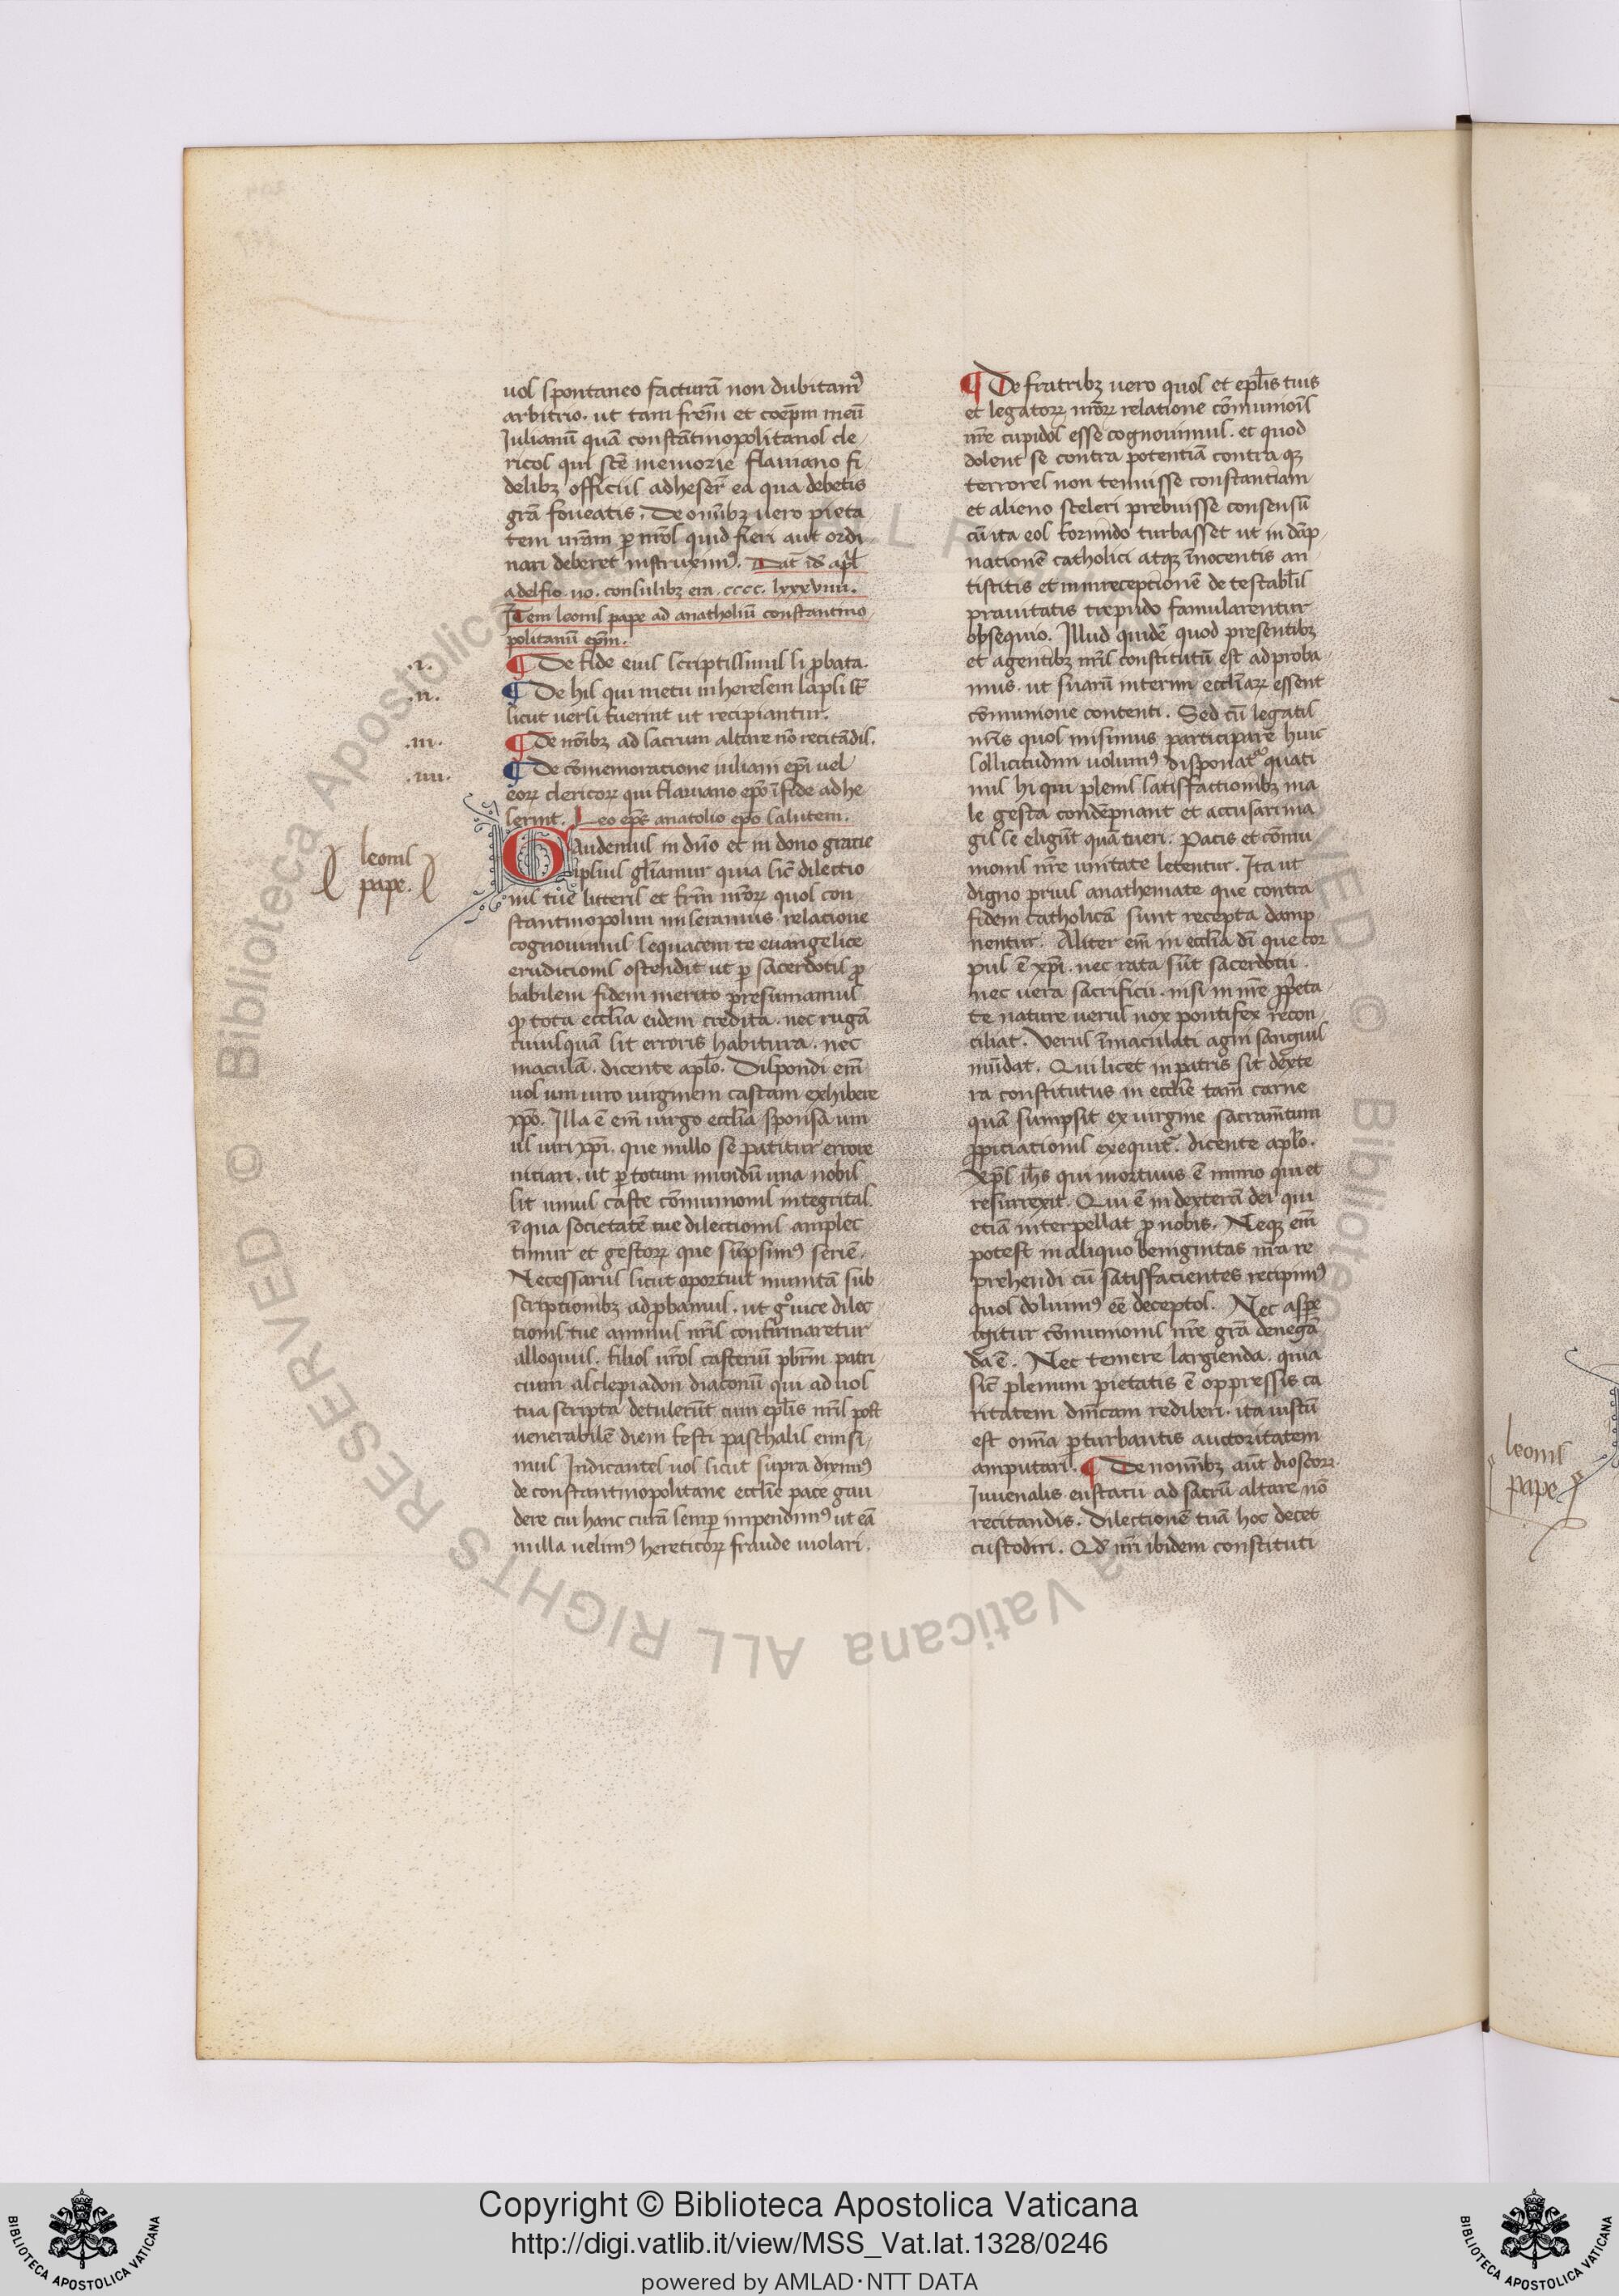 uos spontaneo facturā non dubitam᷒
arbitrio. ut tam frēm et coep̄m meū
Iulianū quā constātinopolitanos cle
ricos qui scē memorie flauiano fi
delibꝫ officiis adheser̄ ea qua debetis
grā foueatis. De omībꝫ uero pieta
tem ur̄am ꝑ nr̄os quid fieri aut ordi
nari deberet instruxim᷒. Dat̄ id᷒ ap̄l
adelfio. uo. consulibꝫ era. cccc. lxxxviiii.
Item leonis pape ad anatholiū constantino
politanū ep̄m.
.i. ¶ De fide eius scriptis suis si ꝓbata.
.ii. ¶ De his qui metu in heresem lapsi st̄
sicut uersi fuerint ut recipiantur.
.iii. ¶ De noībꝫ ad sacrum altare nō recitādis.
.iiii. ¶ De cōmemoratione iuliani ep̄i uel
eoꝝ clericoꝝ qui flauiano ep̄o ī fide adhe
serint. Leo ep̄s anatolio ep̄o salutem.
leonis
pape.
Gaudemus in dn̄o et in dono gratie
ipsius gl̄iamur quia sic̄ dilectio
nis tue litteris et fr̄m nr̄oꝝ quos con
stantinopolim miseramus relatione
cognouimus sequacem te euangelice
erudicionis ostendit ut ꝑ sacerdotis ꝓ
babilem fidem merito presumamus
ꝙ tota eccl̄ia eidem credita. nec rugā
cuiusquā sit erroris habitura. nec
maculā. dicente apl̄o. Dispondi em̄
uos uni uiro uirginem castam exhibere
xp̄o. Illa ē em̄ uirgo eccl̄ia sponsa uni
us uiri xp̄i. que nullo se patitur errore
uiciari. ut ꝑ totum mundū una nobis
sit unius caste cōmunionis integritas.
ī qua societatē tue dilectionis amplec
timur et gestoꝝ que sūpsim᷒ seriē.
Necessariis sicut oportuit munitā sub
scriptionibꝫ adꝓbamus. ut gͦ uice dilec
tionis tue animus nr̄is confirmaretur
alloquiis. filios nr̄os casteriū pb̄rm patri
cium asclepiadon diaconū qui ad nos
tua scripta detulerūt cum epl̄is nr̄is post
uenerabilē diem festi paschalis emisi
mus Indicantes uos sicut supra dixim᷒
de constantinopolitane eccl̄ie pace gau
dere cui hanc curā semꝑ impendim᷒ ut eā
nulla uelim᷒ hereticoꝝ fraude uiolari.
¶ De fratribꝫ uero quos et epl̄is tuis
et legatoꝝ nr̄oꝝ relatione cōmunioīs
nr̄e cupidos esse cognouimus. et quod
dolent se contra potentiā contra qꝫ
terrores non tenuisse constantiam
et alieno sceleri prebuisse consensū
cū ita eos formido turbasset ut in dāp
nationē catholici atqꝫ īnocentis an
tistitis et in in receptionē detestabl̄is
prauitatis trepido famularentur
obsequio. Illud quidē quod presentibꝫ
et agentibꝫ nr̄is constitutū est adproba
mus. ut suarū interim eccl̄iaꝝ essent
cōmunione contenti. Sed cū legatis
nr̄is quos misimus participarē huic
sollicitudini uolum᷒ disponat᷑ quati
nus hi qui plenis satisfactionibꝫ ma
le gesta condēpnant et accusari ma
gis se eligūt quā tueri. Pacis et cōmu
nionis nr̄e unitate letentur. Ita ut
digno prius anathemate que contra
fidem catholicā sunt recepta damp
nentur. Aliter em̄ in eccl̄ia dī que cor
pus ē xp̄i. nec rata sūt sacerdotii.
nec uera sacrificii. nisi in nr̄e ꝓprieta
te nature uerus nox pontifex recon
ciliat. Verus īmaculati agni sanguis
mūdat. Qui licet in patris sit dexte
ra constitutus in eccl̄ie tam̄ carne
quā sumpsit ex uirgine sacram̄tum
ꝓpiciationis exequit᷑. dicente apl̄o.
xp̄s ih̄s qui mortuus ē immo qui et
resurrexit. Qui ē in dexterā dei qui
etiā interpellat ꝓ nobis. Neqꝫ em̄
potest in aliquo benignitas nr̄a re
prehendi cū satisfacientes recipim᷒
quos doluim᷒ eē deceptos. Nec aspere
igitur cōmunionis nr̄e grā denegā
da ē. Nec temere largienda. quia
sic̄ plenum pietatis ē oppressis ca
ritatem dn̄icam rediberi. ita iustū
est omīa ꝑturbantis auctoritatem
amputari. ¶ De nomībꝫ aūt dioscori.
Iuuenalis eustatii ad sacrū altare nō
recitandis. Dilectionē tuā hoc decet
custodiri. Qd̄ nr̄i ibidem constituti
leonis
pape
Copyright © Biblioteca Apostolica Vaticana
http://digi.vatlib.it/view/MSS_Vat.lat.1328/0246
powered by AMLAD·NTT DATA